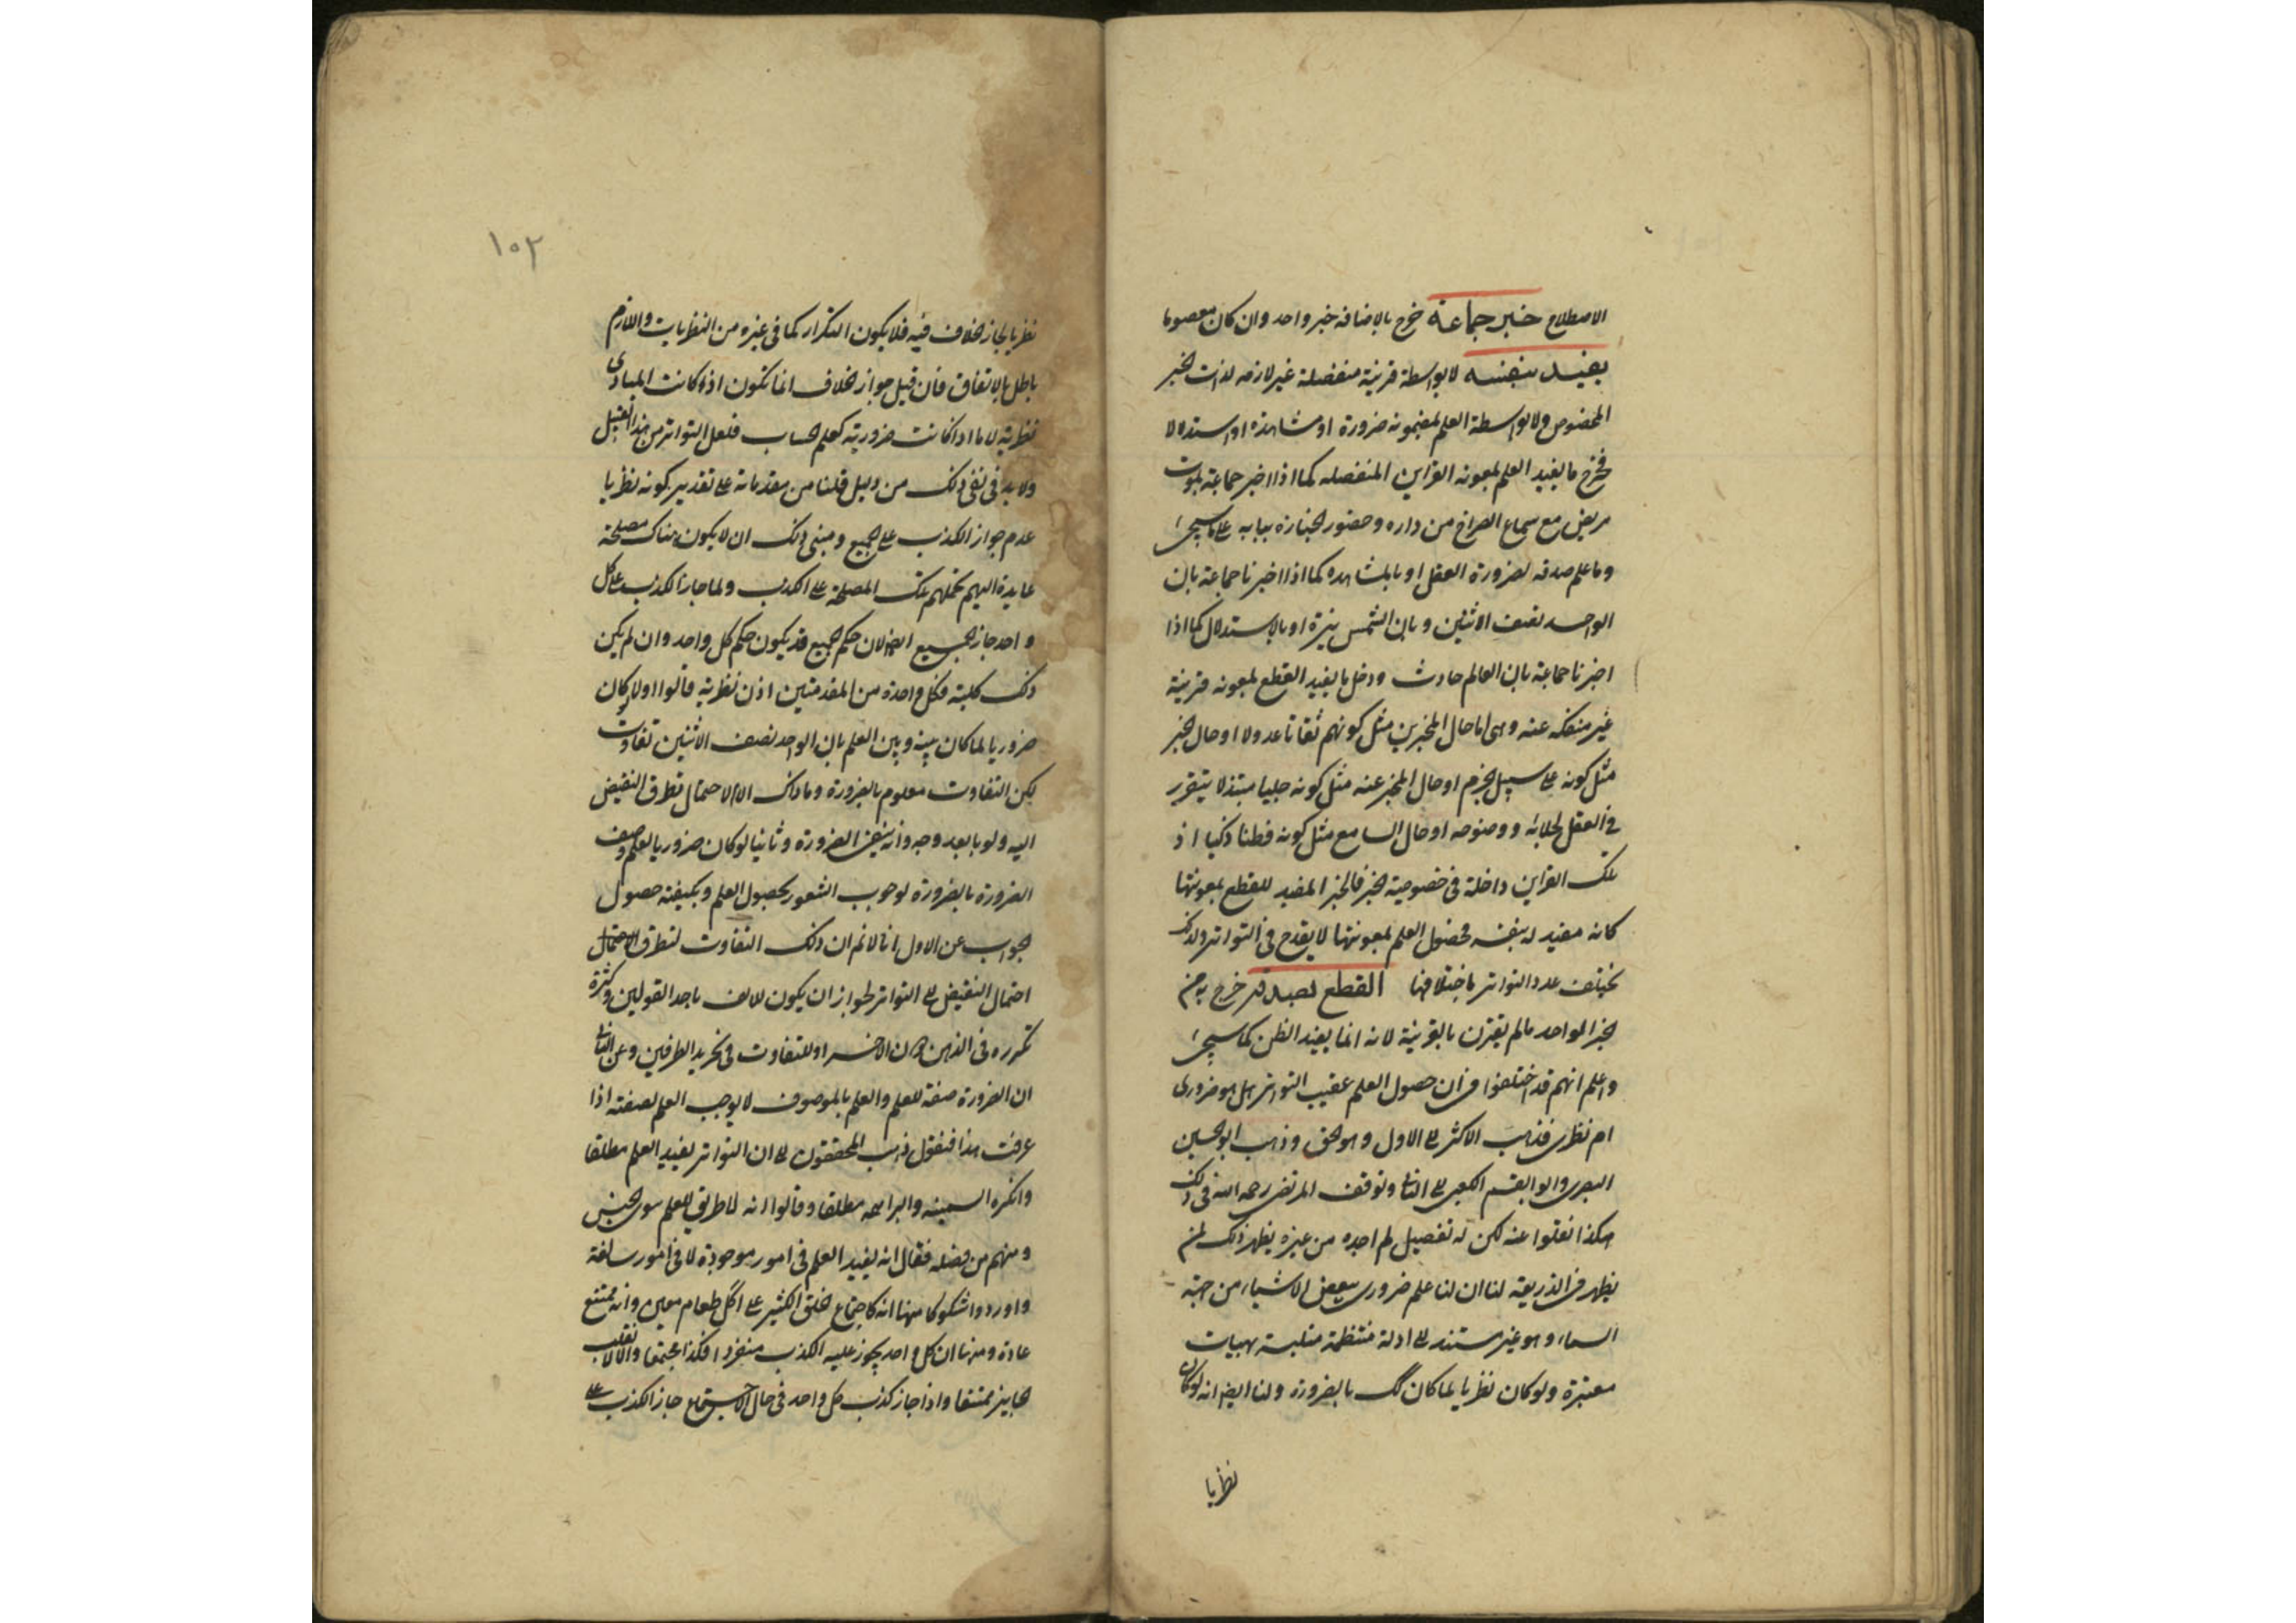 الاصطلاح خبر جماعة خرج بالاضافه خبر واحد وان كان معصوما
يفيد بنفسه لا بواسطة قرينة منفصلة غير لازمه لذات الخبر
المخصوص ولا بواسطة العلم بمضمونه ضرورة او مشاهدة او استدلالا
فخرج ما يفيد العلم بمعونه القراين المنفصله كما اذا اخبر جماعة بموت
مريض مع سماع الصراخ من داره وحضور الجنازه ببابه على ما سيجئ
وما علم صدقه بضرورة العقل او بالمشاهده كما اذا اخبرنا جماعة بان
الواحد نصف الاثنين وبان الشمس نيرة او بالاستدلال كما اذا
اخبرنا جماعة بان العالم حادث ودخل ما يفيد القطع بمعونه قرينة
غير منفكه عنه وهى اما حال المخبرين مثل كونهم ثقاتا عدولا او حال الخبر
مثل كونه على سبيل الجزم او حال المخبر عنه مثل كونه جليا مبتذلا يتقرر
فى العقل لجلائه ووضوحه او حال السامع مثل كونه فطنا ذكيا اذ
تلك القراين داخلة فى خصوصية الخبر فالخبر المفيد للقطع بمعونتها
كانه مفيد له بنفسه فحصول العلم بمعونتها لا يقدح فى التواتر ولذلك
يختلف عدد التواتر باختلافها القطع بصدقه خرج به
خبر الواحد مالم يقترن بالقرينة لانه انما يفيد الظن كما سيجئ
واعلم انهم قد اختلفوا فى ان حصول العلم عقيب التواتر هل هو ضرورى
ام نظرى فذهب الاكثر الى الاول وهو الحق وذهب ابو الحسين
البصرى وابو القسم الكعبى الى الثانى وتوقف المرتضى رحمه الله فى ذلك
هكذا نقلوا عنه لكن له تفصيل لم اجده من غيره يظهر ذلك لمن
ينظر فى الذريعة لنا ان لنا علم ضرورى ببعض الاشياء من جهة
السماء وهو غير مستند الى ادلة منتظمة بهيات
معتبرة ولو كان نظريا لما كان كك بالضرورة ولنا ايضا انه لو كان
نظريا
١٠٢
نظريا لجاز خلاف فيه فلا يكون التكرار كما فى غيره من النظريات واللازم
باطل بالاتفاق فان قيل جواز الخلاف انما تكون اذا كانت المبادى
نظرية لا ما اذا كانت ضرورية كعلم الحساب فلعل التواتر من هذا القبيل
ولا بد فى نفى ذلك من دليل قلنا من مقدماته على تقدير كونه نظريا
عدم جواز الكذب على الجميع ومبنى ذلك ان لا يكون هناك مصلحة
عايدة اليهم تحملهم تلك المصلحة على الكذب ولما جاز الكذب على كل
واحد جاز الجميع ايضا لان حكم الجميع قد يكون حكم كل واحد وان لم يكن
ذلك كلية فكل واحدة من المقدمتين اذن نظرية قالوا اولا لو كان
ضروريا لما كان بينه وبين العلم بان الواحد نصف الاثنين تفاوت
لكن التفاوت معلوم بالضرورة وما ذاك الا لاحتمال تطرق النقيض
اليه ولو بابعد وجه وانه ينفى الضرورة وثانيا لو كان ضروريا لعلم وصف
الضرورة بالضرورة لوجوب الشعور بحصول العلم وبكيفية حصول
الجواب عن الاول انا لا نم ان ذلك التفاوت لتطرق الاحتمال
احتمال النقيض الى التواتر لجواز ان يكون للالف باحد القولين وكثرة
تكرره فى الذهن دون الاخر او للتفاوت فى تجريد الطرفين وعن الثانى
ان الضرورة صفة للعلم والعلم بالموصوف لا يوجب العلم بصفته اذا
عرفت هذا فنقول ذهب المحققون الى ان التواتر يفيد العلم مطلقا
وانكره السمنيه والبراهمه مطلقا وقالوا انه لا طريق للعلم سوى الحس
ومنهم من فصله فقال انه يفيد العلم فى امور موجودة لا فى امور سالفة
واوردوا شكوكا منها انه كاجتماع الخلق الكثير على اكل طعام معين وانه ممتنع
عادة ومنها ان كل واحد يجوز عليه الكذب منفردا فكذا مجتمعا والا لانقلب
الجايز ممتنعا واذا جاز كذب كل واحد فى حال الاجتماع جاز الكذب على